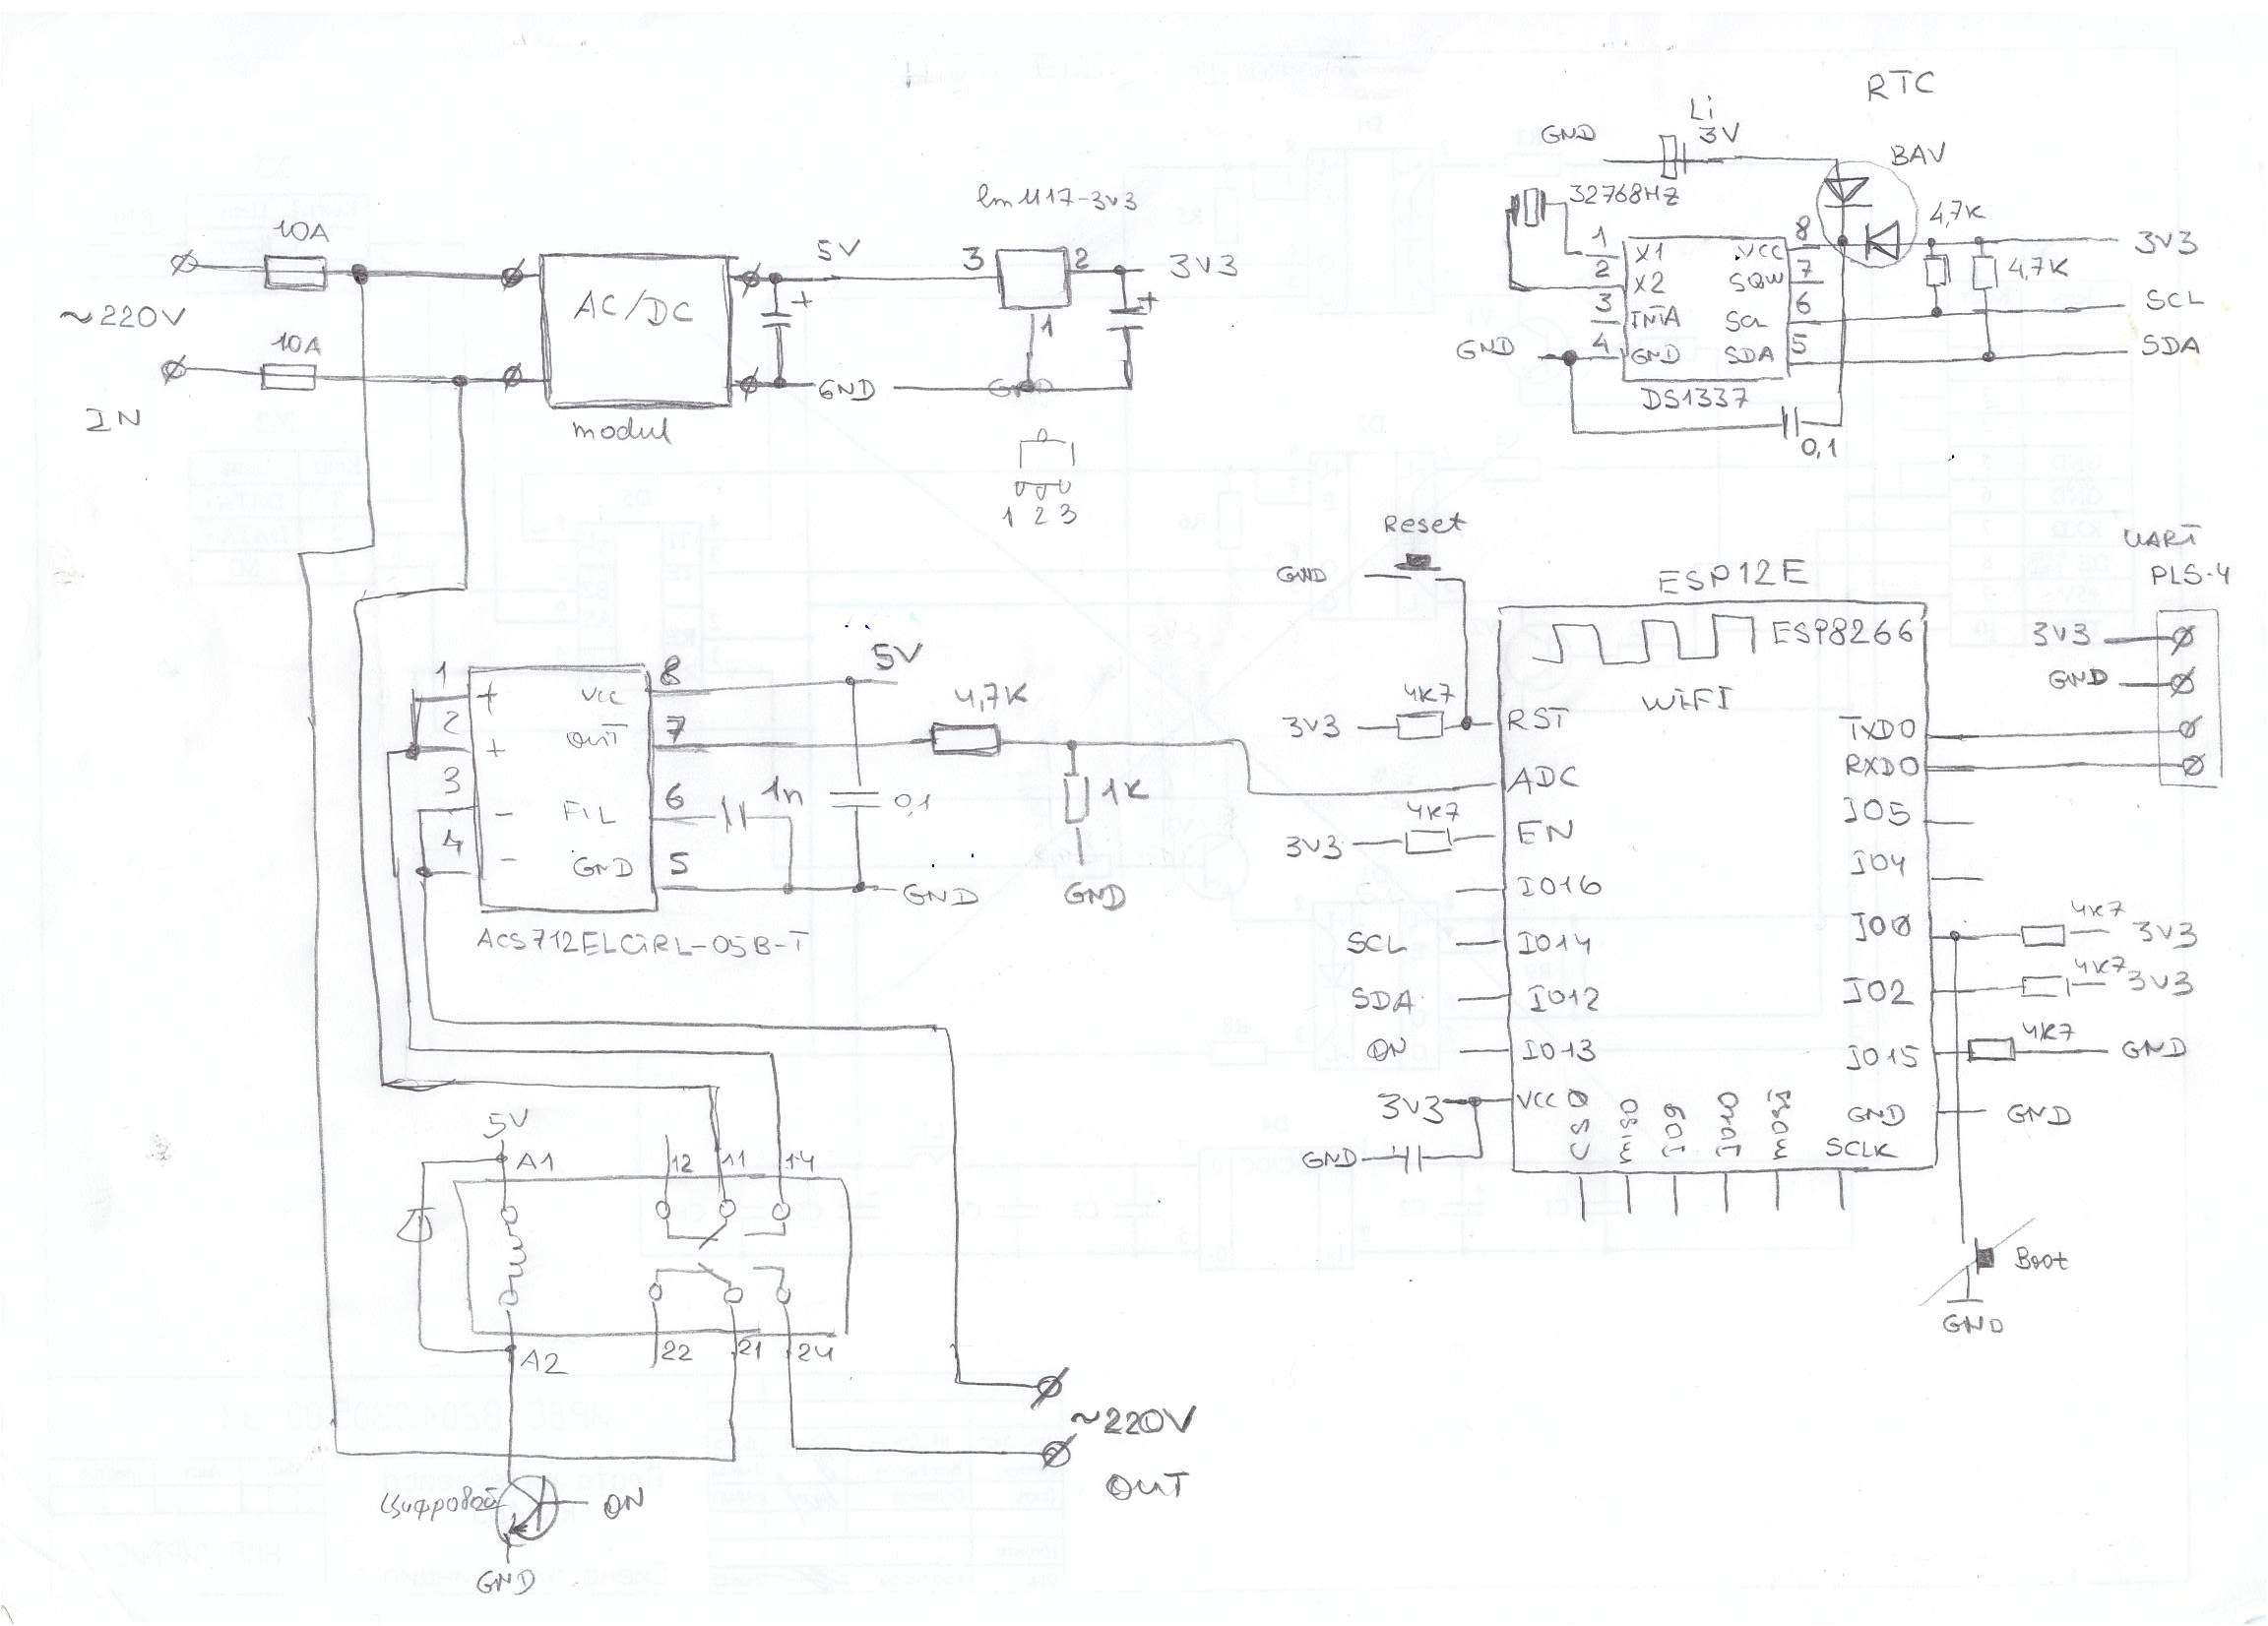 RTC
Li
3V
GND
BAV
32768HZ
4,7K
1
X1
VCC
8
3V3
2
X2
SQW
7
4,7K
3
INTA
SCL
6
SCL
GND
4
GND
SDA
5
SDA
DS1337
0,1
10A
~220V
10A
IN
AC/DC
modul
5V
GND
lm1117-3v3
3
2
3V3
1
GND
1 2 3
Reset
GND
ESP12E
ESP8266
WIFI
UART
PLS-4
3V3
GND
4K7
3V3
RST
TXD0
ADC
RXD0
4K7
3V3
EN
IO5
IO16
IO4
SCL
IO14
IO0
4K7
3V3
SDA
IO12
IO2
4K7
3V3
ON
IO13
IO15
4K7
GND
3V3
VCC
GND
GND
GND
CS0
MISO
IO9
IO10
MOSI
SCLK
Boot
GND
1
+
VCC
8
5V
2
+
OUT
7
4,7K
3
-
FIL
6
1n
0,1
1K
4
-
GND
5
GND
GND
ACS712ELCTRL-05B-T
5V
A1
12
11
14
A2
22
21
24
~220V
OUT
Цифровой
ON
GND